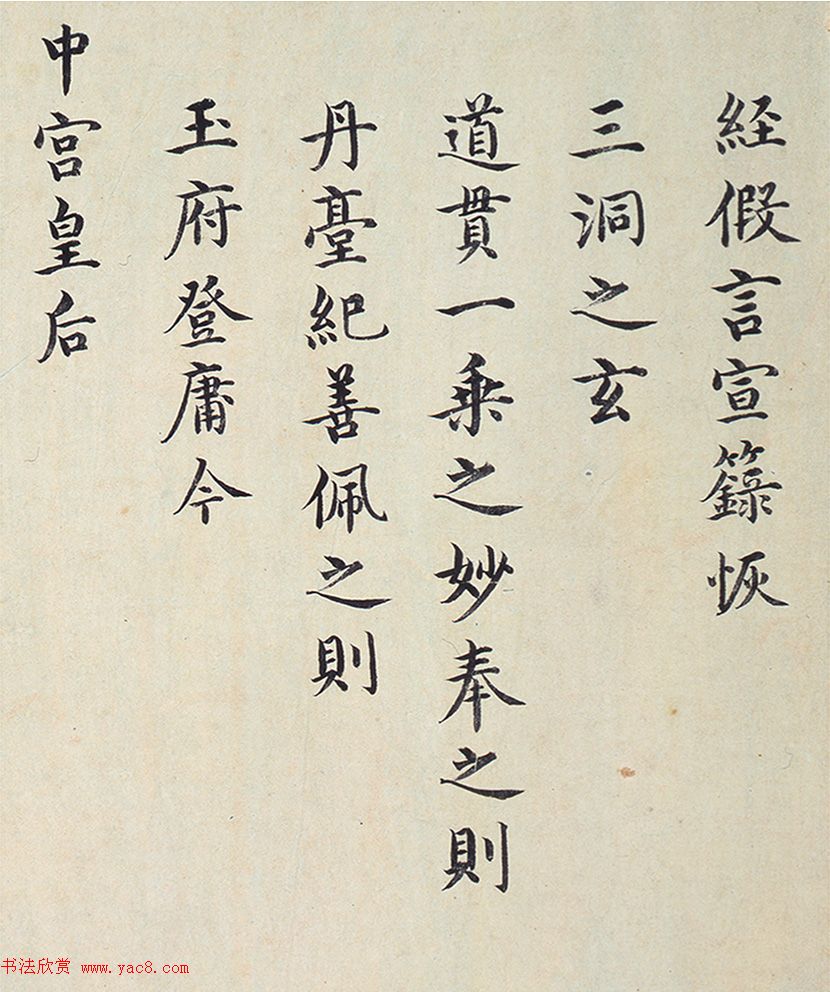 経假言宣籙恢
三洞之玄
道貫一乗之妙奉之則
丹臺紀善佩之則
玉府登庸今
中宮皇后
书法欣赏 www.yac8.com